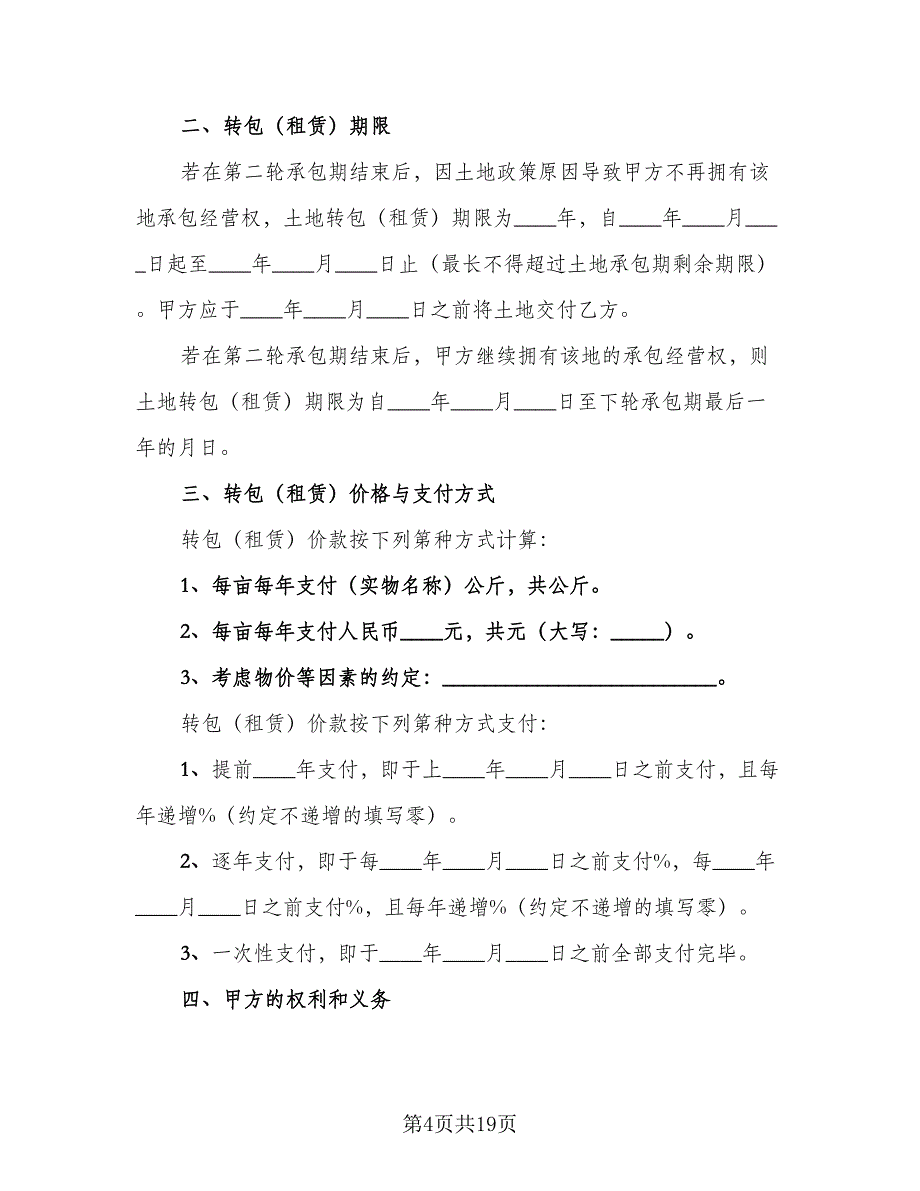 二、转包（租赁）期限
若在第二轮承包期结束后，因土地政策原因导致甲方不再拥有该
地承包经营权，土地转包（租赁）期限为____年，自____年____月___
_日起至____年____月____日止（最长不得超过土地承包期剩余期限）
。甲方应于____年____月____日之前将土地交付乙方。
若在第二轮承包期结束后，甲方继续拥有该地的承包经营权，则
土地转包（租赁）期限为自____年____月____日至下轮承包期最后一
年的月日。
三、转包（租赁）价格与支付方式
转包（租赁）价款按下列第种方式计算：
1、每亩每年支付（实物名称）公斤，共公斤。
2、每亩每年支付人民币____元，共元（大写：_____）。
3、考虑物价等因素的约定：__________________________。
转包（租赁）价款按下列第种方式支付：
1、提前____年支付，即于上____年____月____日之前支付，且每
年递增%（约定不递增的填写零）。
2、逐年支付，即于每____年____月____日之前支付%，每____年
____月____日之前支付%，且每年递增%（约定不递增的填写零）。
3、一次性支付，即于____年____月____日之前全部支付完毕。
四、甲方的权利和义务
第4页共19页